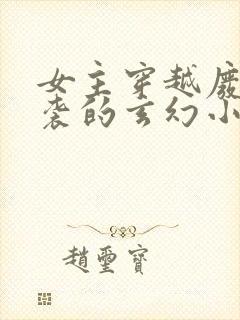 女主穿越废
袭的玄幻小
趙璽寶